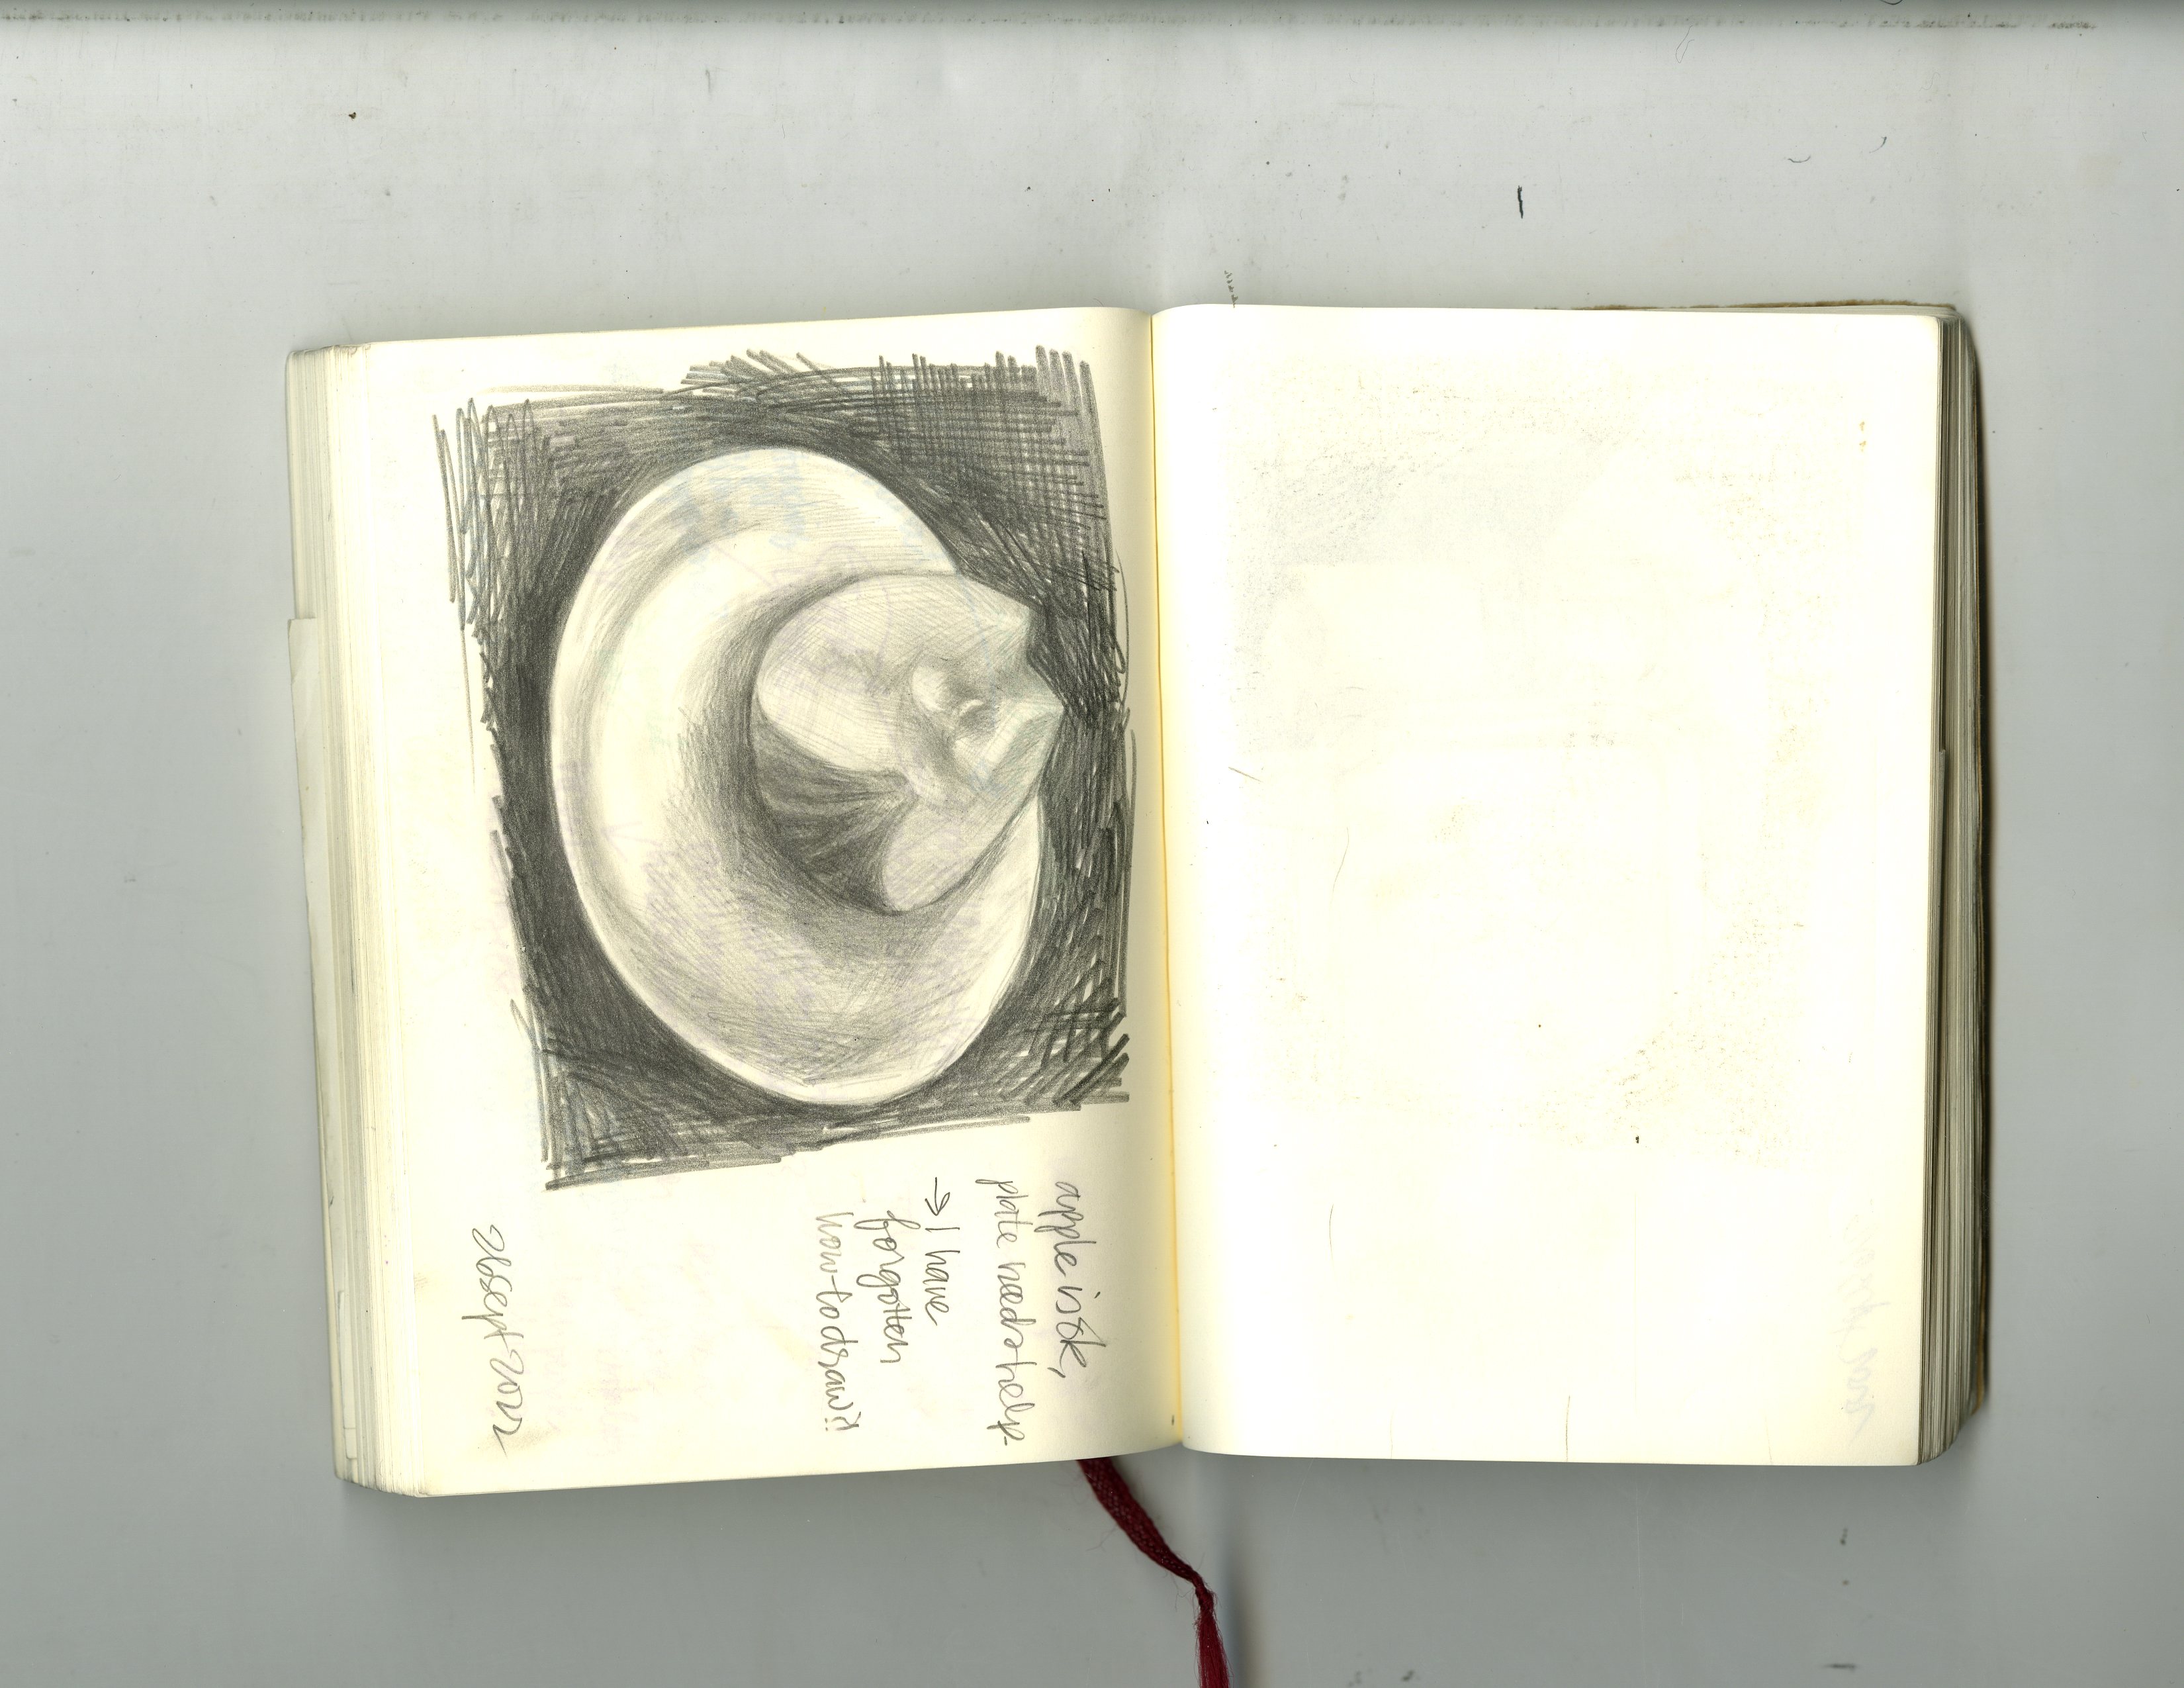 apple is ok,
plate needs help-
→ I have
forgotten
how to draw?!
26 Sept 2022